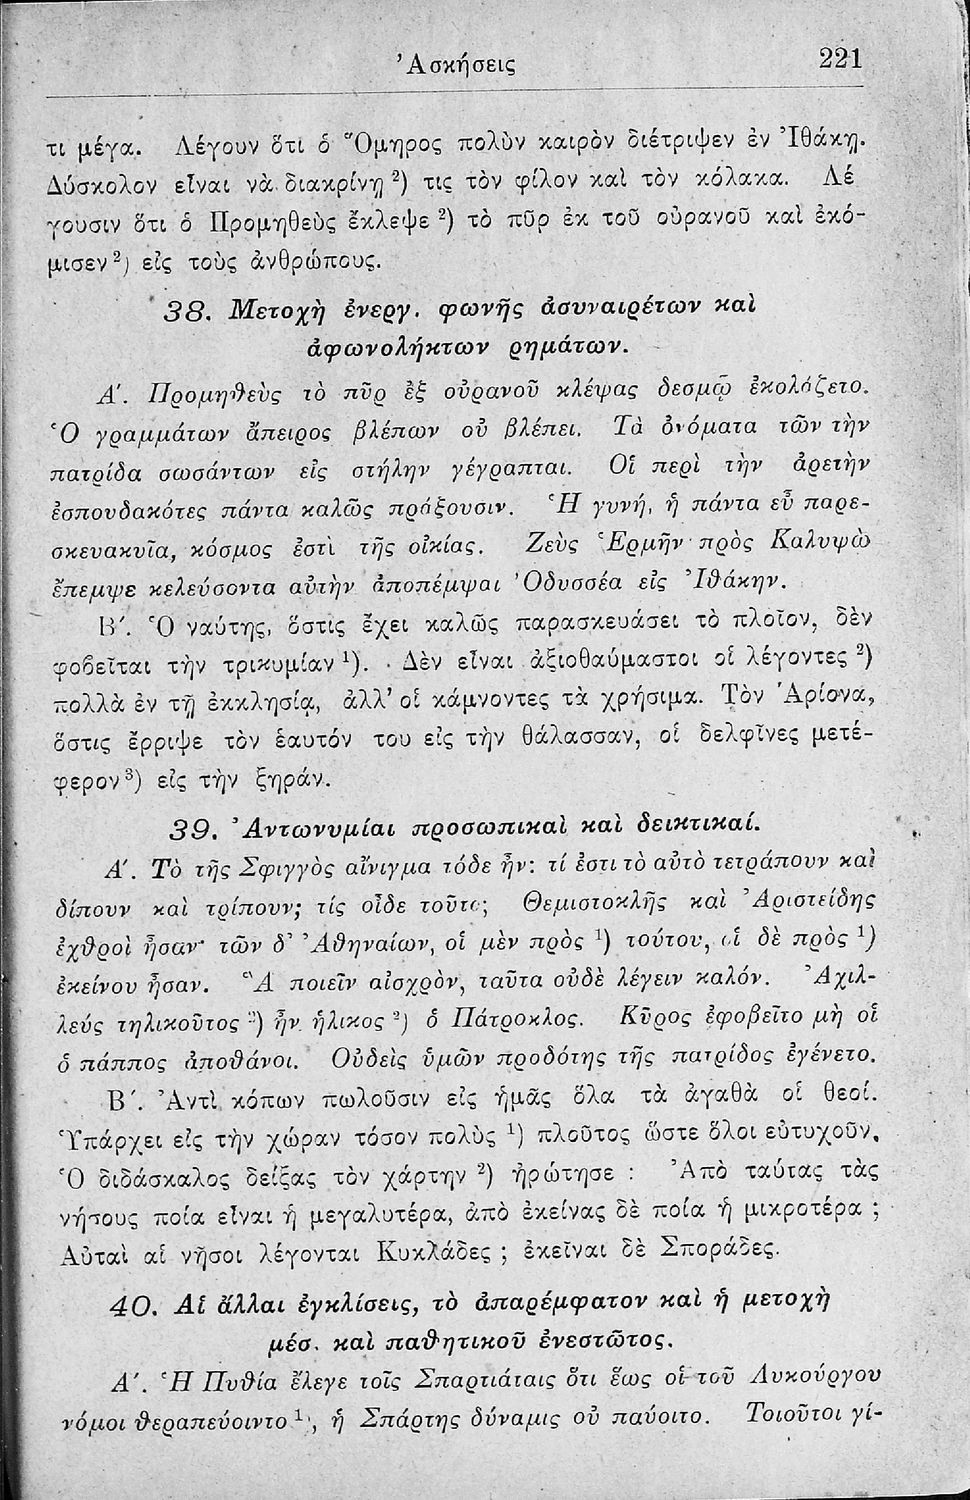 Ἀσκήσεις 221
τι μέγα. Λέγουν ὅτι ὁ Ὅμηρος πολὺν καιρὸν διέτριψεν ἐν Ἰθάκῃ.
Δύσκολον εἶναι νὰ διακρίνῃ ²) τις τὸν φίλον καὶ τὸν κόλακα. Λέ
γουσιν ὅτι ὁ Προμηθεὺς ἔκλεψε ²) τὸ πῦρ ἐκ τοῦ οὐρανοῦ καὶ ἐκό-
μισεν ²) εἰς τοὺς ἀνθρώπους.
38. Μετοχὴ ἐνεργ. φωνῆς ἀσυναιρέτων καὶ
ἀφωνολήκτων ρημάτων.
Α΄. Προμηθεὺς τὸ πῦρ ἐξ οὐρανοῦ κλέψας δεσμῷ ἐκολάζετο.
Ὁ γραμμάτων ἄπειρος βλέπων οὐ βλέπει. Τὰ ὀνόματα τῶν τὴν
πατρίδα σωσάντων εἰς στήλην γέγραπται. Οἱ περὶ τὴν ἀρετὴν
ἐσπουδακότες πάντα καλῶς πράξουσιν. Ἡ γυνή, ἡ πάντα εὖ παρε-
σκευακυῖα, κόσμος ἐστὶ τῆς οἰκίας. Ζεὺς Ἑρμῆν πρὸς Καλυψὼ
ἔπεμψε κελεύσοντα αὐτὴν ἀποπέμψαι Ὀδυσσέα εἰς Ἰθάκην.
Β΄. Ὁ ναύτης, ὅστις ἔχει καλῶς παρασκευάσει τὸ πλοῖον, δὲν
φοβεῖται τὴν τρικυμίαν ¹). Δὲν εἶναι ἀξιοθαύμαστοι οἱ λέγοντες ²)
πολλὰ ἐν τῇ ἐκκλησίᾳ, ἀλλ' οἱ κάμνοντες τὰ χρήσιμα. Τὸν Ἀρίονα,
ὅστις ἔρριψε τὸν ἑαυτόν του εἰς τὴν θάλασσαν, οἱ δελφῖνες μετέ-
φερον ³) εἰς τὴν ξηράν.
39. Ἀντωνυμίαι προσωπικαὶ καὶ δεικτικαί.
Α΄. Τὸ τῆς Σφιγγὸς αἴνιγμα τόδε ἦν: τί ἐστι τὸ αὐτὸ τετράπουν καὶ
δίπουν καὶ τρίπουν; τίς οἶδε τοῦτο; Θεμιστοκλῆς καὶ Ἀριστείδης
ἐχθροὶ ἦσαν· τῶν δ' Ἀθηναίων, οἱ μὲν πρὸς ¹) τούτου, οἱ δὲ πρὸς ¹)
ἐκείνου ἦσαν. Ἃ ποιεῖν αἰσχρὸν, ταῦτα οὐδὲ λέγειν καλόν. Ἀχιλ-
λεύς τηλικοῦτος ²) ἦν ἡλίκος ²) ὁ Πάτροκλος. Κῦρος ἐφοβεῖτο μὴ οἷ
ὁ πάππος ἀποθάνοι. Οὐδεὶς ὑμῶν προδότης τῆς πατρίδος ἐγένετο.
Β΄. Ἀντὶ κόπων πωλοῦσιν εἰς ἡμᾶς ὅλα τὰ ἀγαθὰ οἱ θεοί.
Ὑπάρχει εἰς τὴν χώραν τόσον πολὺς ¹) πλοῦτος ὥστε ὅλοι εὐτυχοῦν.
Ὁ διδάσκαλος δείξας τὸν χάρτην ²) ἠρώτησε : Ἀπὸ ταύτας τὰς
νήσους ποία εἶναι ἡ μεγαλυτέρα, ἀπὸ ἐκείνας δὲ ποία ἡ μικροτέρα ;
Αὐταὶ αἱ νῆσοι λέγονται Κυκλάδες ; ἐκεῖναι δὲ Σποράδες.
40. Αἱ ἄλλαι ἐγκλίσεις, τὸ ἀπαρέμφατον καὶ ἡ μετοχὴ
μέσ. καὶ παθητικοῦ ἐνεστῶτος.
Α΄. Ἡ Πυθία ἔλεγε τοῖς Σπαρτιάταις ὅτι ἕως οἱ τοῦ Λυκούργου
νόμοι θεραπεύοιντο ¹), ἡ Σπάρτης δύναμις οὐ παύοιτο. Τοιοῦτοι γί-